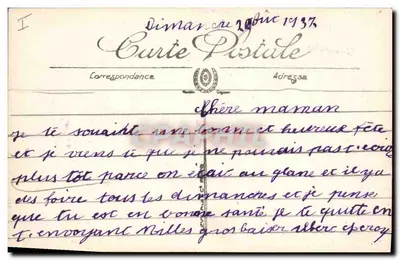 I
Dimanche 29 août 1937
Carte Postale
Correspondance Adresse
Chère maman
je te souaite une bonne et hureux fête
et je viens te que je ne pouvais pas t
plus tôt parce on était au glane et il y a
des foire tous les dimanches et je pense
que tu est en bonne santé je te quitte en
t. envoyant Milles gros baiser albert